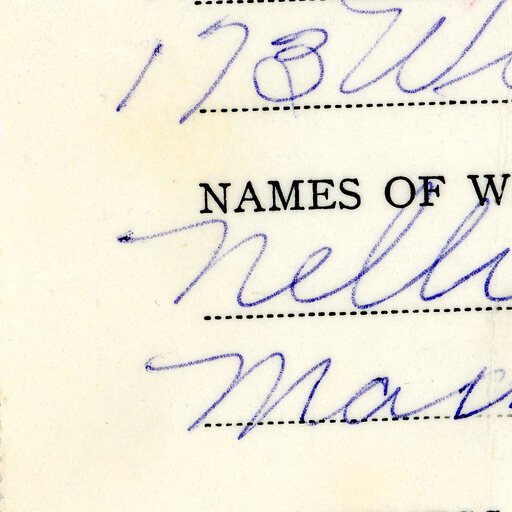 173 W
NAMES OF W
Nelli
Mar